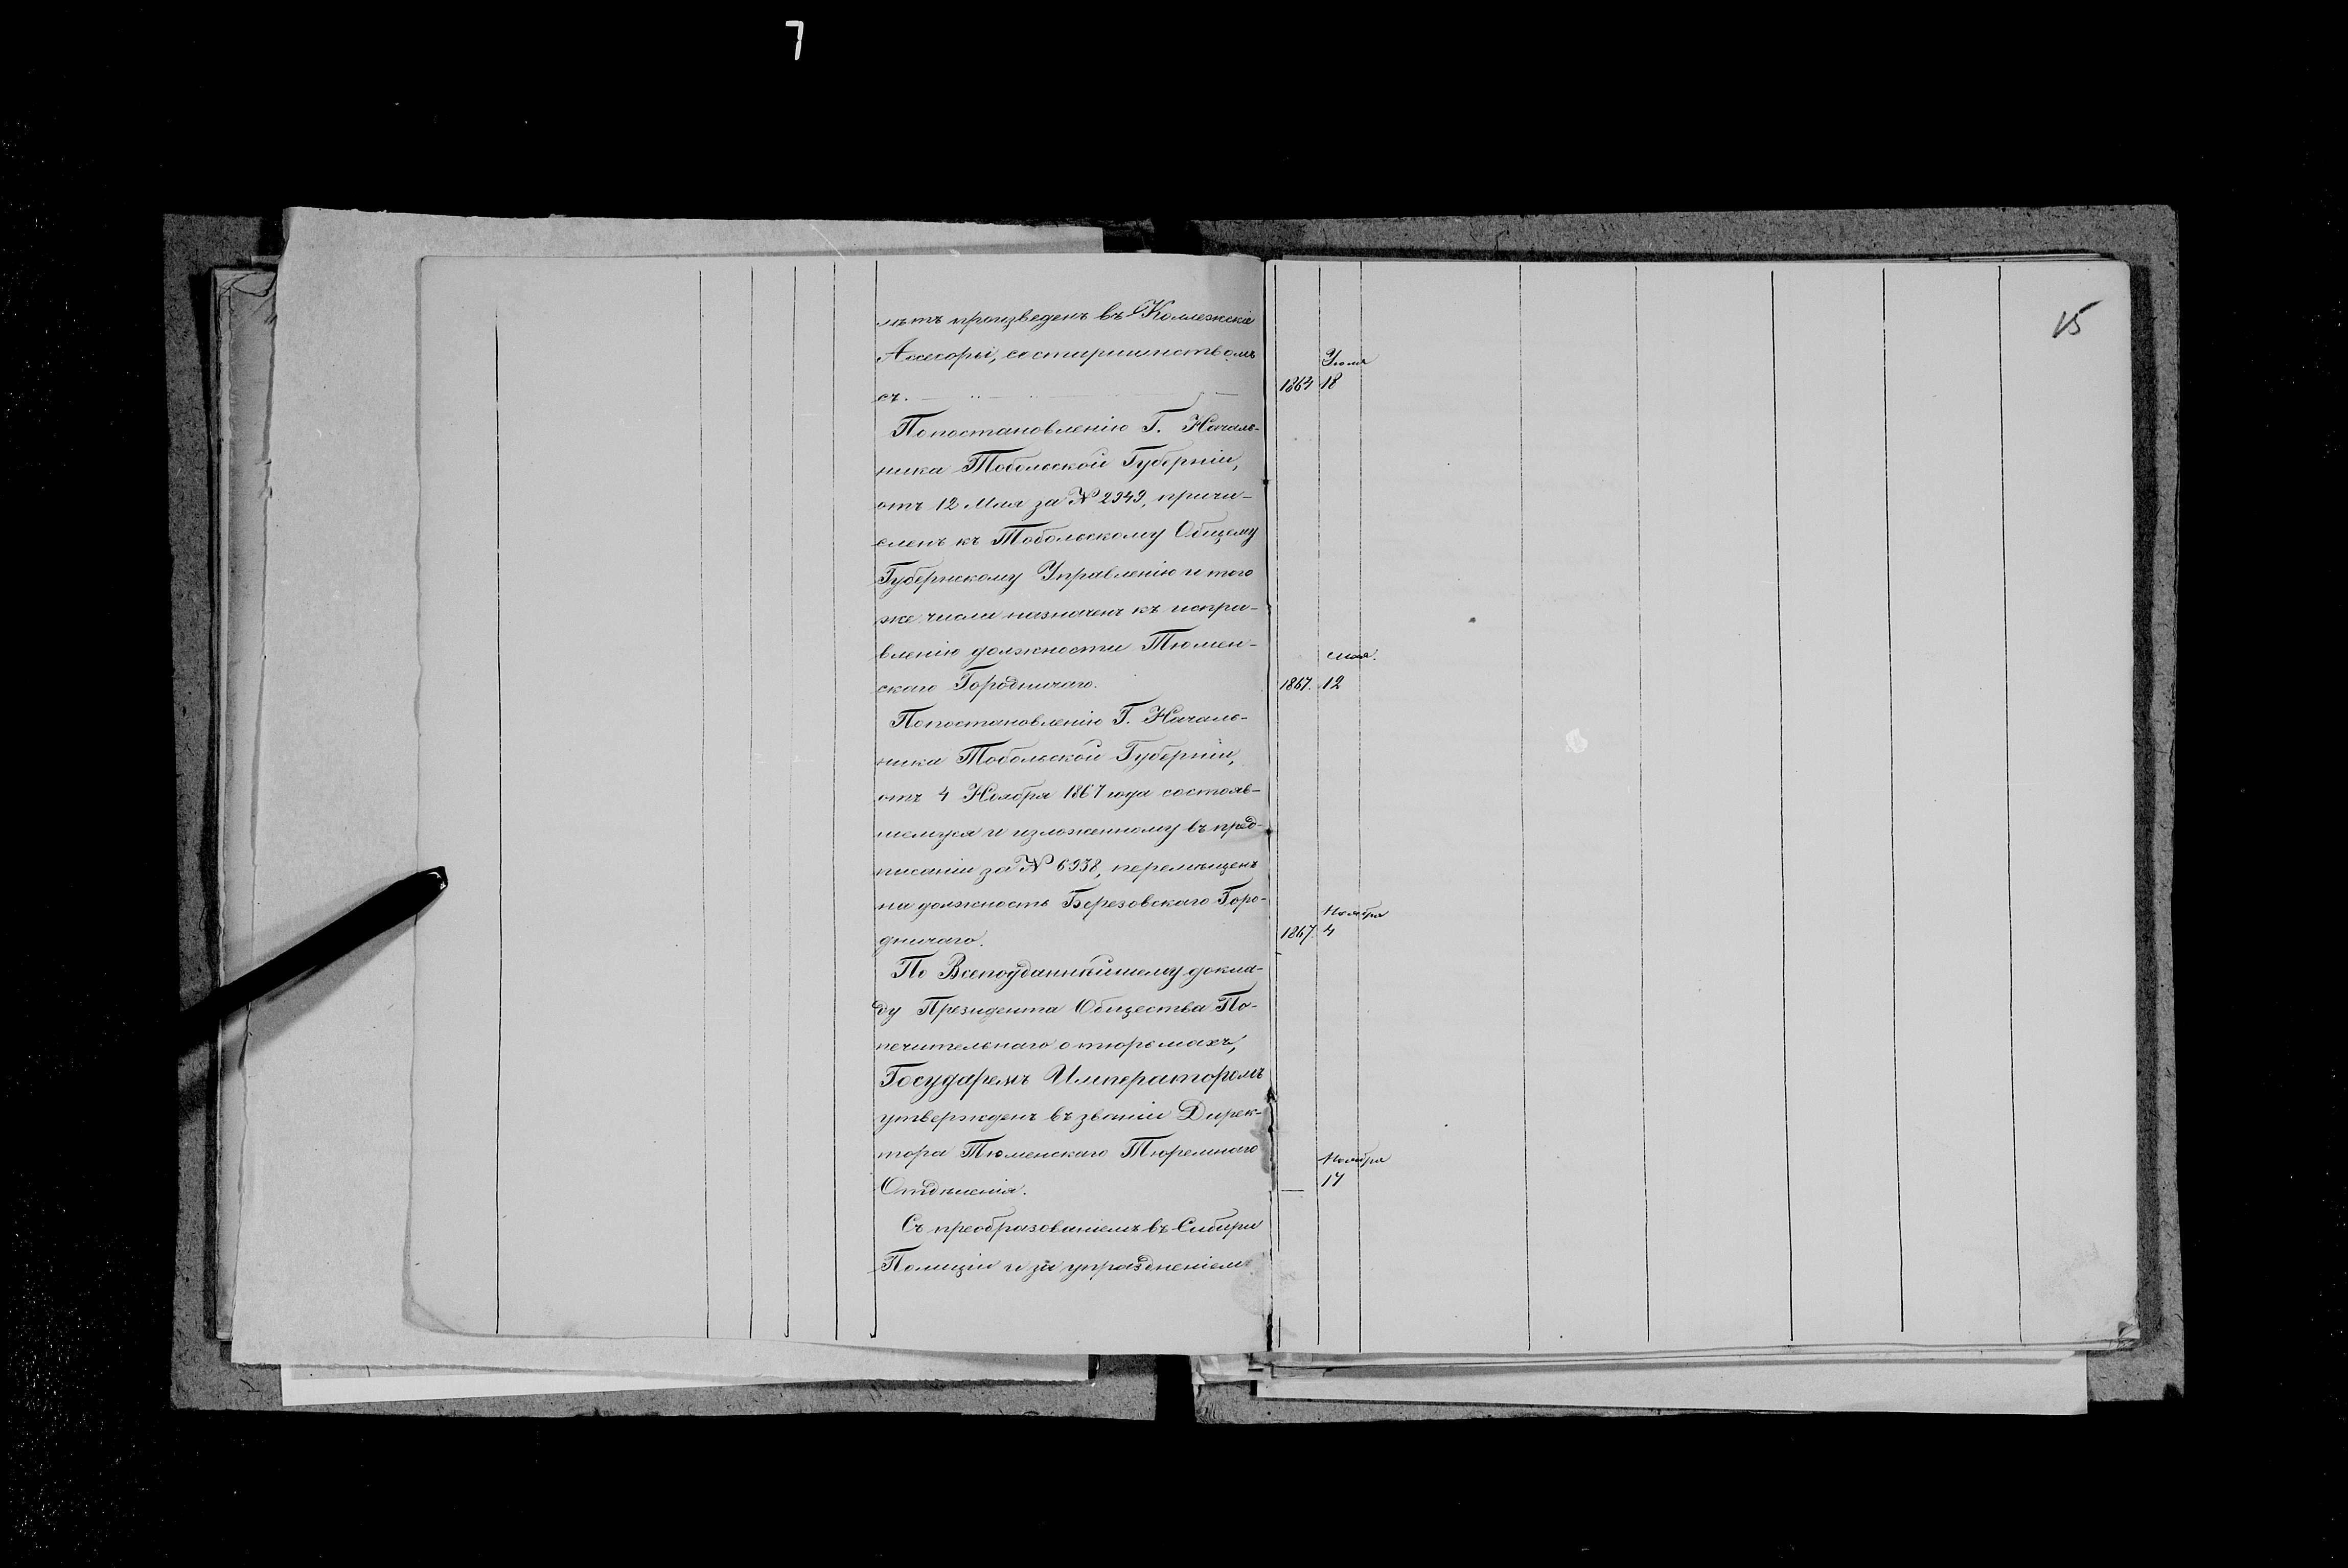 7
15
лѣтъ произведенъ въ Коллежскіе
Ассесоры, состаршинствомъ
съ.
Іюля
1864 18
Попостановленію Г. Началь-
ника Тобольской Губерніи,
отъ 12 Мая за № 2949, причи-
сленъ къ Тобольскому Общему
Губернскому Управленію и того
же числа назначенъ къ испра-
вленію должности Тюмен-
скаго Городничаго.
мая.
1867. 12
Попостановленію Г. Началь-
ника Тобольской Губерніи,
отъ 4 Ноября 1867 года состояв-
шемуся и изложенному въ пред-
писаніи за № 6938, перемѣщенъ
на должность Березовскаго Горо-
дничаго.
Ноября
1867. 4
По Всеподданнѣйшему докла-
ду Президента Общества По-
печительнаго о тюрьмахъ,
Государемъ Императоромъ
утвержденъ въ званіи Дирек-
тора Тюменскаго Тюремнаго
Отдѣленія.
Ноября
— 17
Съ преобразованіемъ въ Сибири
Полиціи и за упраздненіемъ